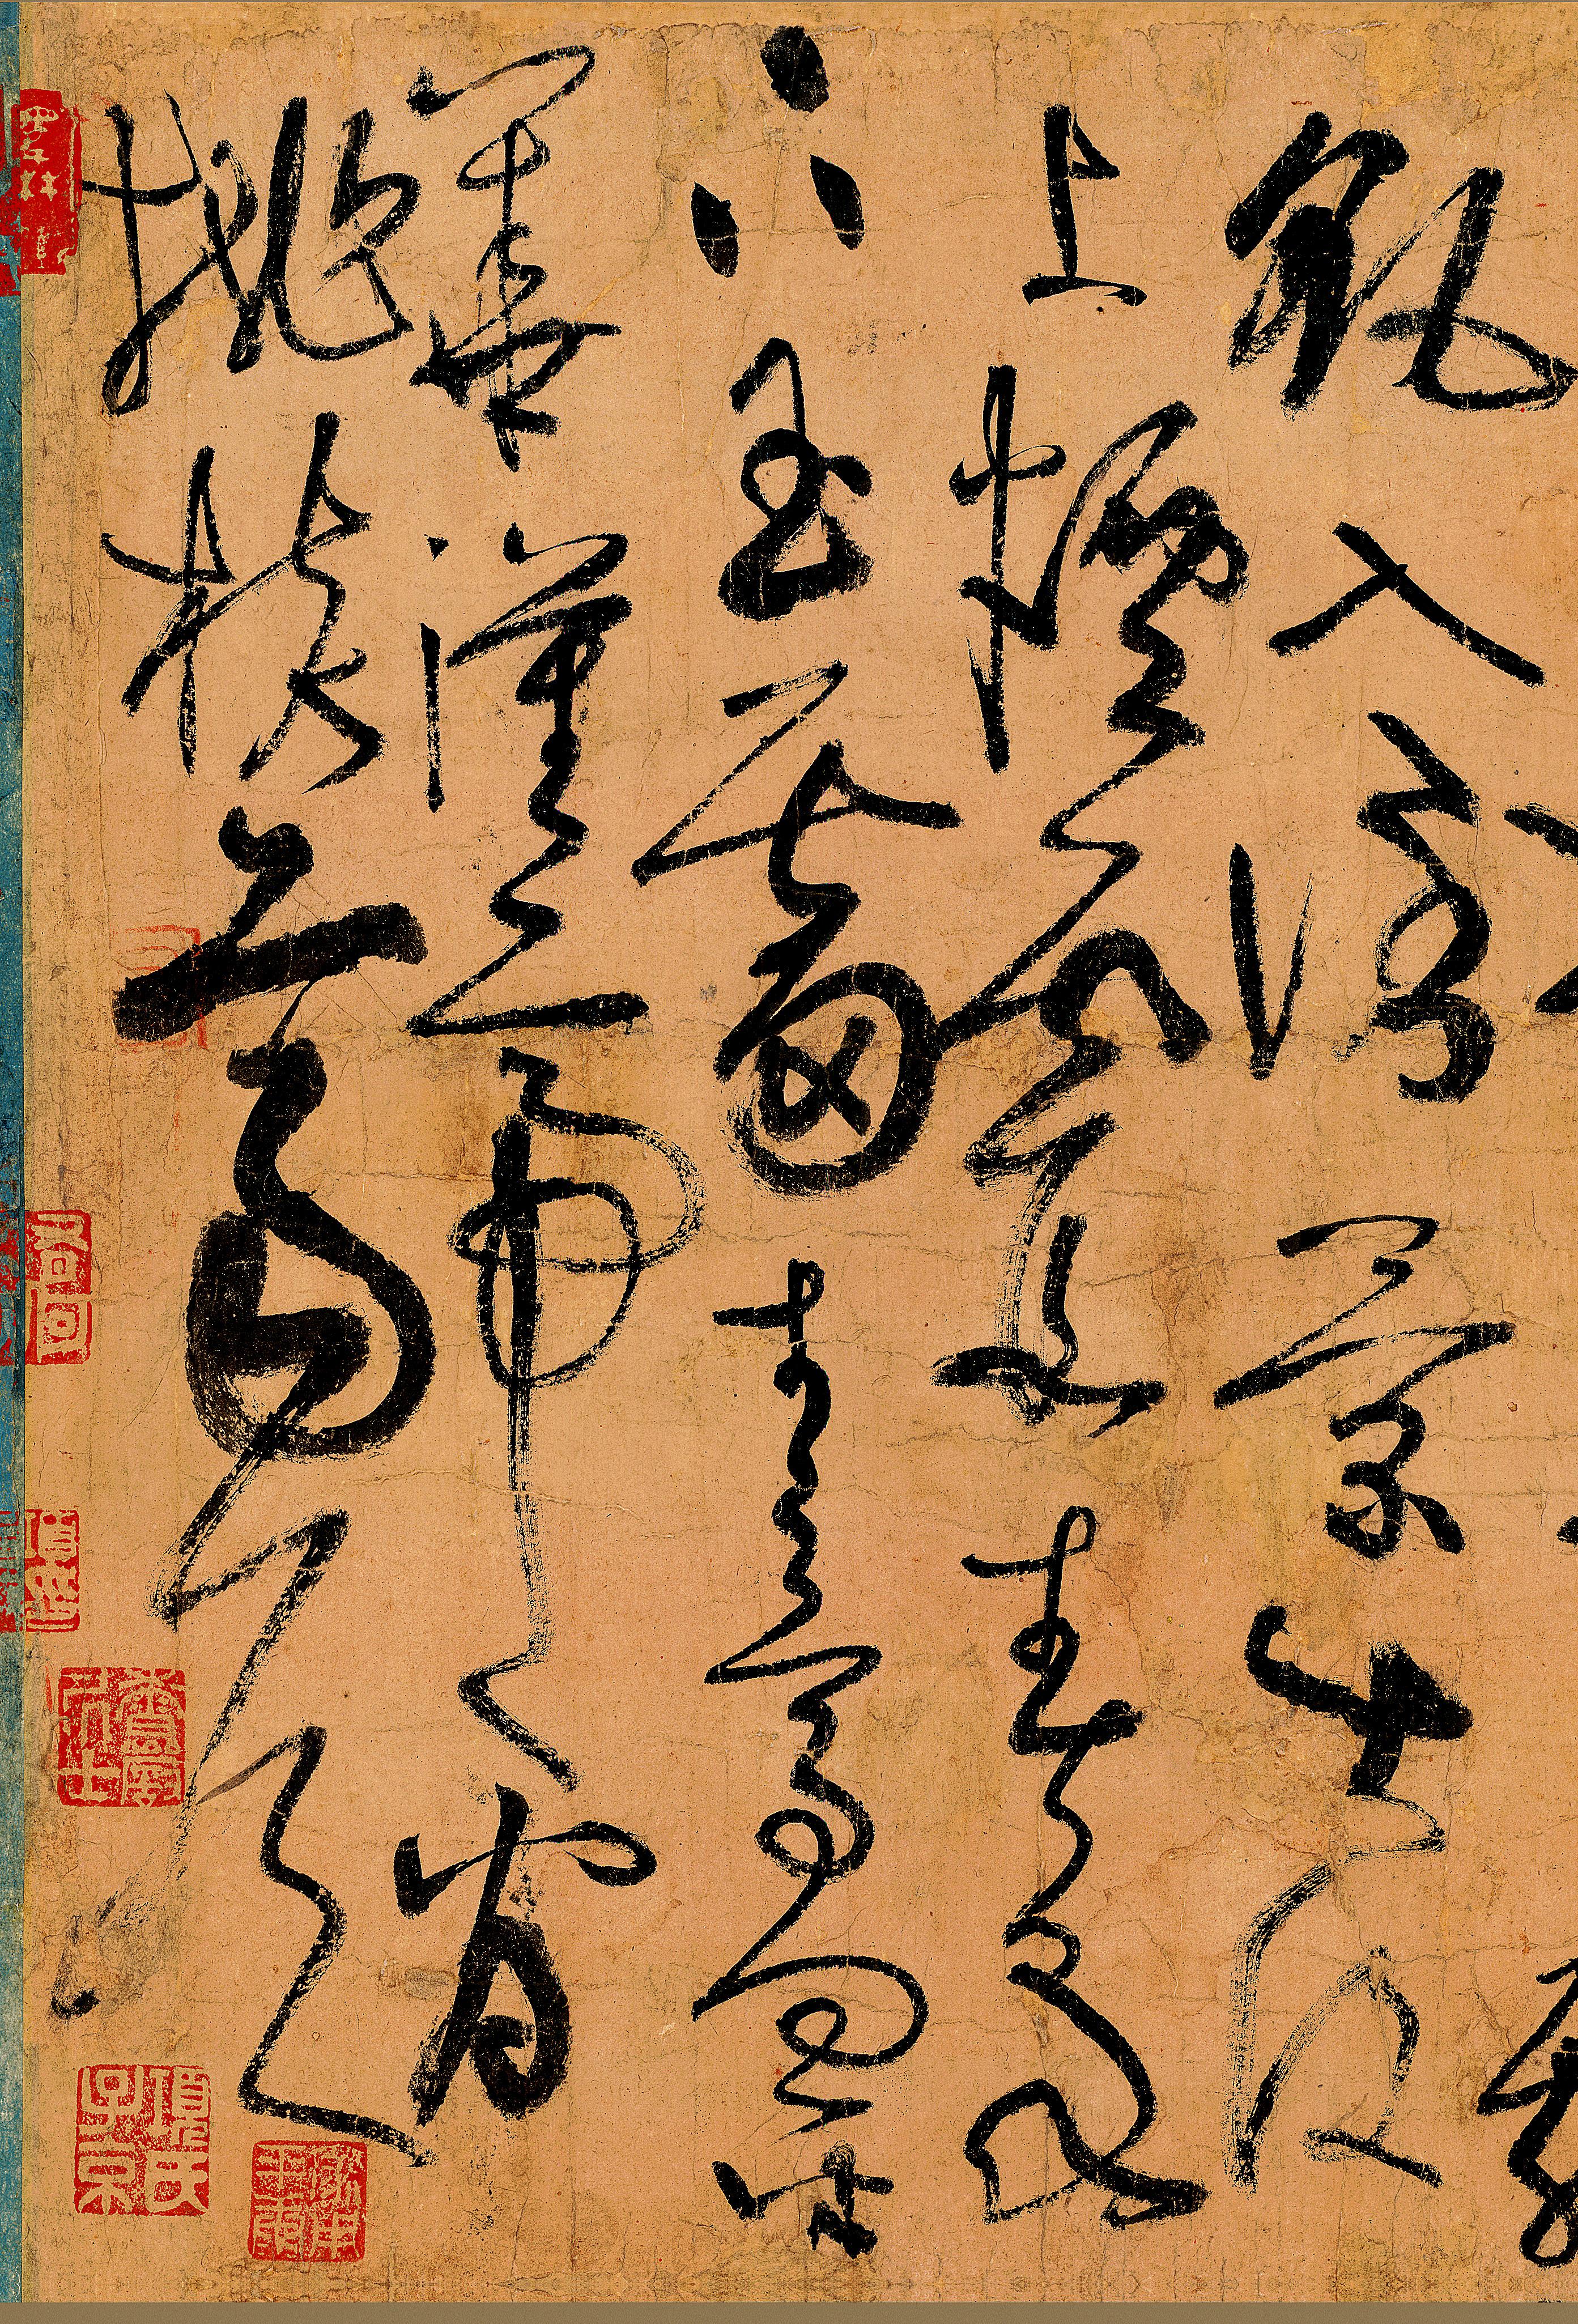 颻入倒景出没
上煙霞春泉
下玉霤青鳥向金
華漢帝看
桃核齊侯